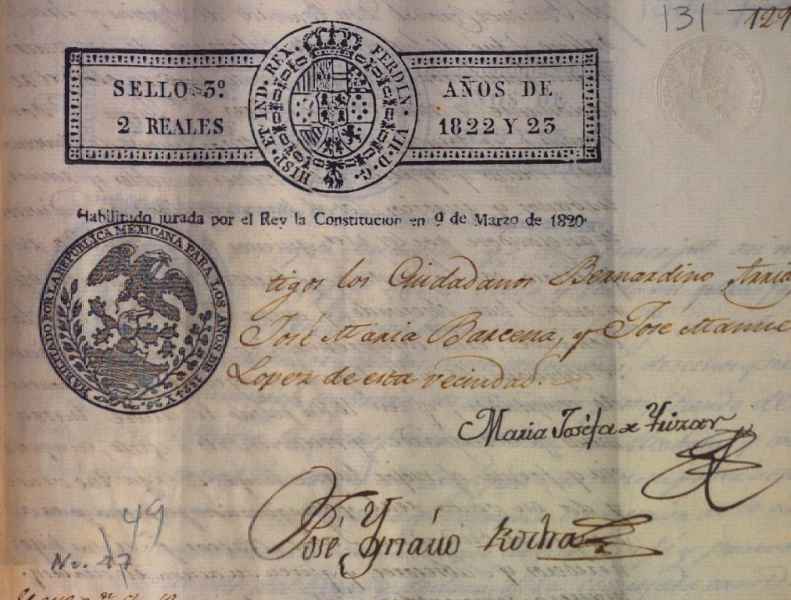 131 129
SELLO 3º AÑOS DE
2 REALES 1822 Y 23
HISP. ET IND. REX. FERDIN. VII. D. G.
Habilitado jurada por el Rey la Constitucion en 9 de Marzo de 1820.
HABILITADO POR LA REPUBLICA MEXICANA PARA LOS AÑOS DE 1824 Y 25
tigos los Ciudadanos Bernardino
José Maria Barcena, y José Manue
Lopez de esta vecindad.
Maria Josefa
José Ygnacio Rocha
149
No. 27